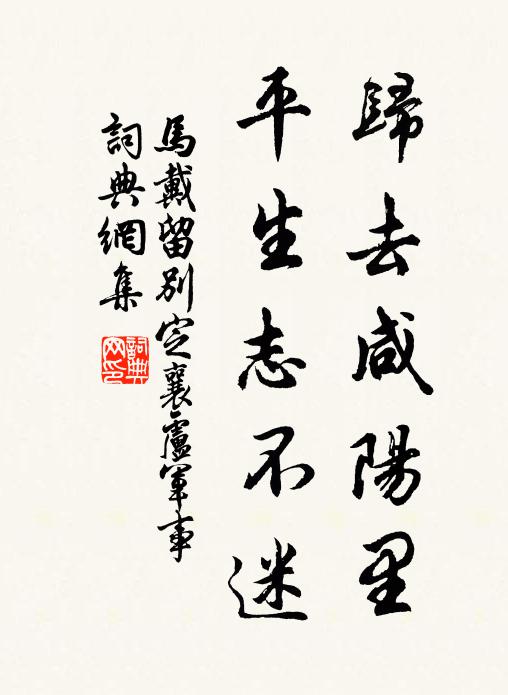 歸去咸陽里
平生志不迷
馬戴留別定襄盧軍事
詞典網集
詞典网印